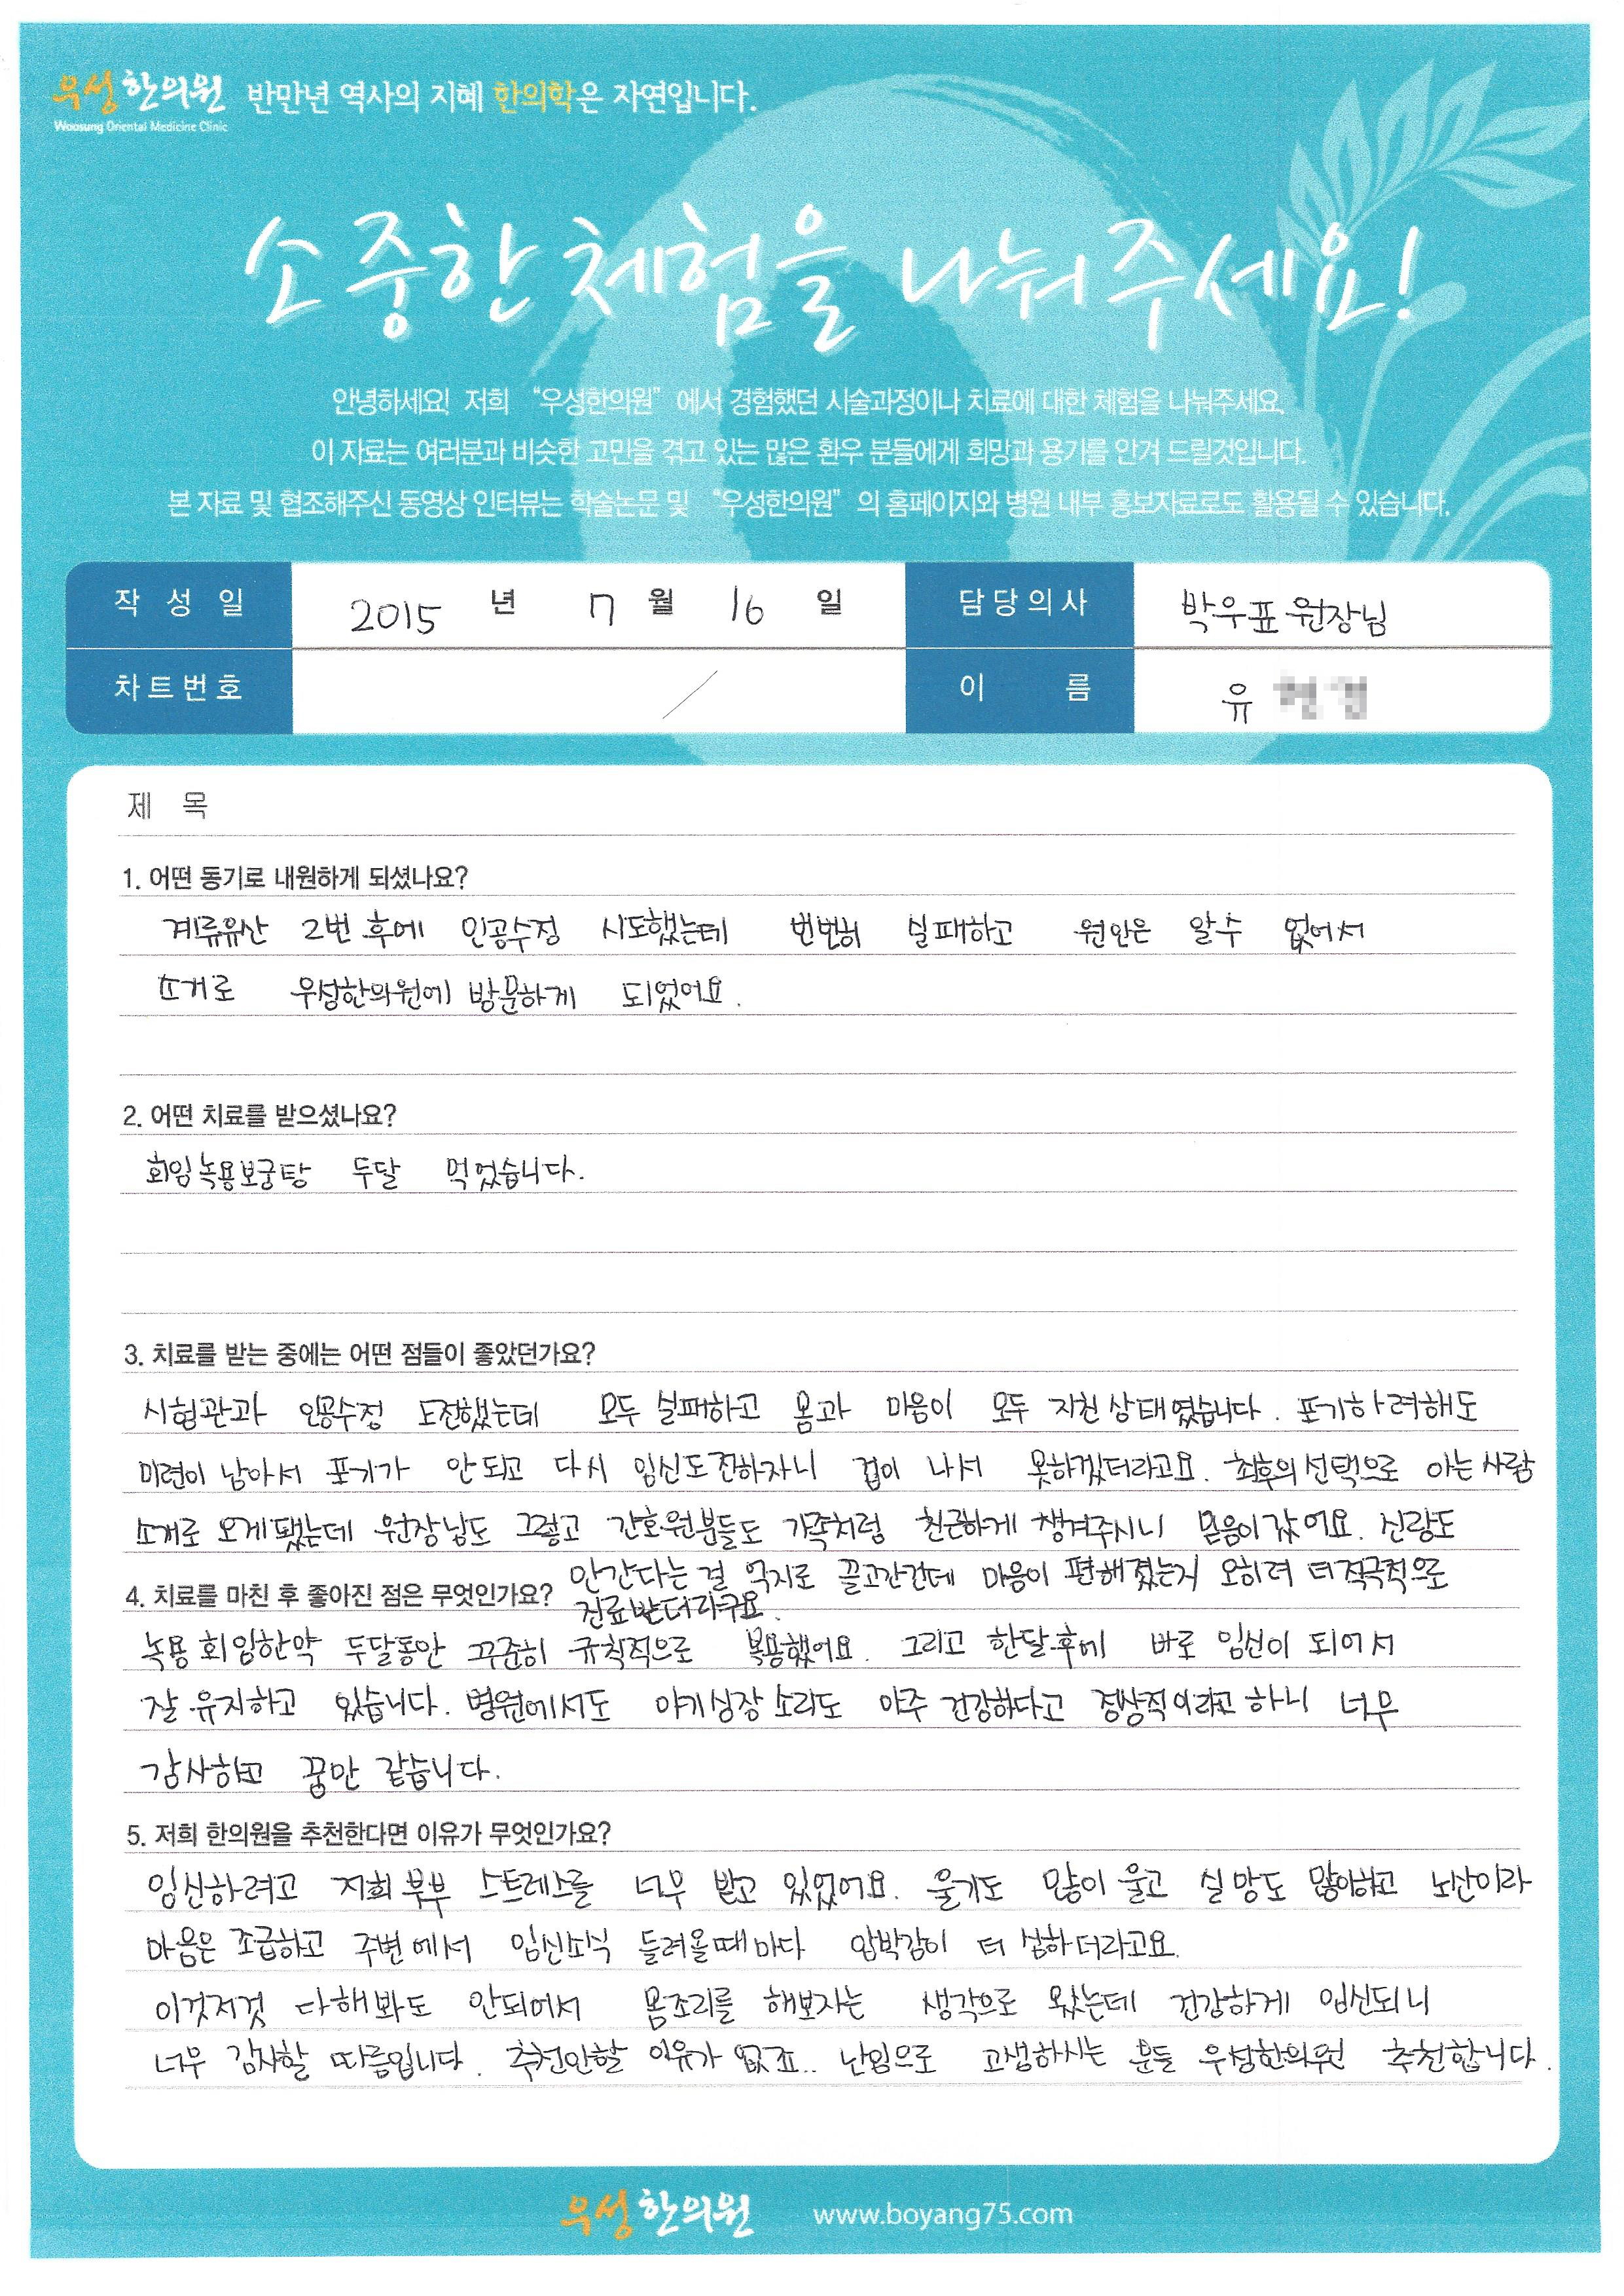 우성한의원 반만년 역사의 지혜 한의학은 자연입니다.
Woosung Oriental Medicine Clinic
소중한 체험을 나눠주세요!
안녕하세요! 저희 “우성한의원” 에서 경험했던 시술과정이나 치료에 대한 체험을 나눠주세요.
이 자료는 여러분과 비슷한 고민을 겪고 있는 많은 환우 분들에게 희망과 용기를 안겨 드릴것입니다.
본 자료 및 협조해주신 동영상 인터뷰는 학술논문 및 “우성한의원” 의 홈페이지와 병원 내부 홍보자료로도 활용될 수 있습니다.
작 성 일 2015 년 7 월 16 일 담당의사 박우표 원장님
차트번호 / 이 름 유
제 목
1. 어떤 동기로 내원하게 되셨나요?
계류유산 2번 후에 인공수정 시도했는데 번번히 실패하고 원인은 알수 없어서
소개로 우성한의원에 방문하게 되었어요.
2. 어떤 치료를 받으셨나요?
회임녹용보궁탕 두달 먹었습니다.
3. 치료를 받는 중에는 어떤 점들이 좋았던가요?
시험관과 인공수정 도전했는데 모두 실패하고 몸과 마음이 모두 지친상태였습니다. 포기하려해도
미련이 남아서 포기가 안되고 다시 임신도전하자니 겁이 나서 못하겠더라고요. 최후의 선택으로 아는사람
소개로 오게됐는데 원장님도 그렇고 간호원분들도 가족처럼 친근하게 챙겨주시니 믿음이 갔어요. 신랑도
안간다는 걸 억지로 끌고간건데 마음이 편해졌는지 오히려 더 적극적으로
진료받더라구요.
4. 치료를 마친 후 좋아진 점은 무엇인가요?
녹용 회임한약 두달동안 꾸준히 규칙적으로 복용했어요. 그리고 한달후에 바로 임신이 되어서
잘 유지하고 있습니다. 병원에서도 아기심장소리도 아주 건강하다고 정상적이라고 하니 너무
감사하고 꿈만 같습니다.
5. 저희 한의원을 추천한다면 이유가 무엇인가요?
임신하려고 저희 부부 스트레스를 너무 받고 있었어요. 울기도 많이 울고 실망도 많이하고 노산이라
마음은 조급하고 주변에서 임신소식 들려올때마다 압박감이 더 심하더라고요.
이것저것 다해봐도 안되어서 몸조리를 해보자는 생각으로 왔는데 건강하게 임신되니
너무 감사할 따름입니다. 추천안할 이유가 없죠.. 난임으로 고생하시는 분들 우성한의원 추천합니다.
우성한의원 www.boyang75.com